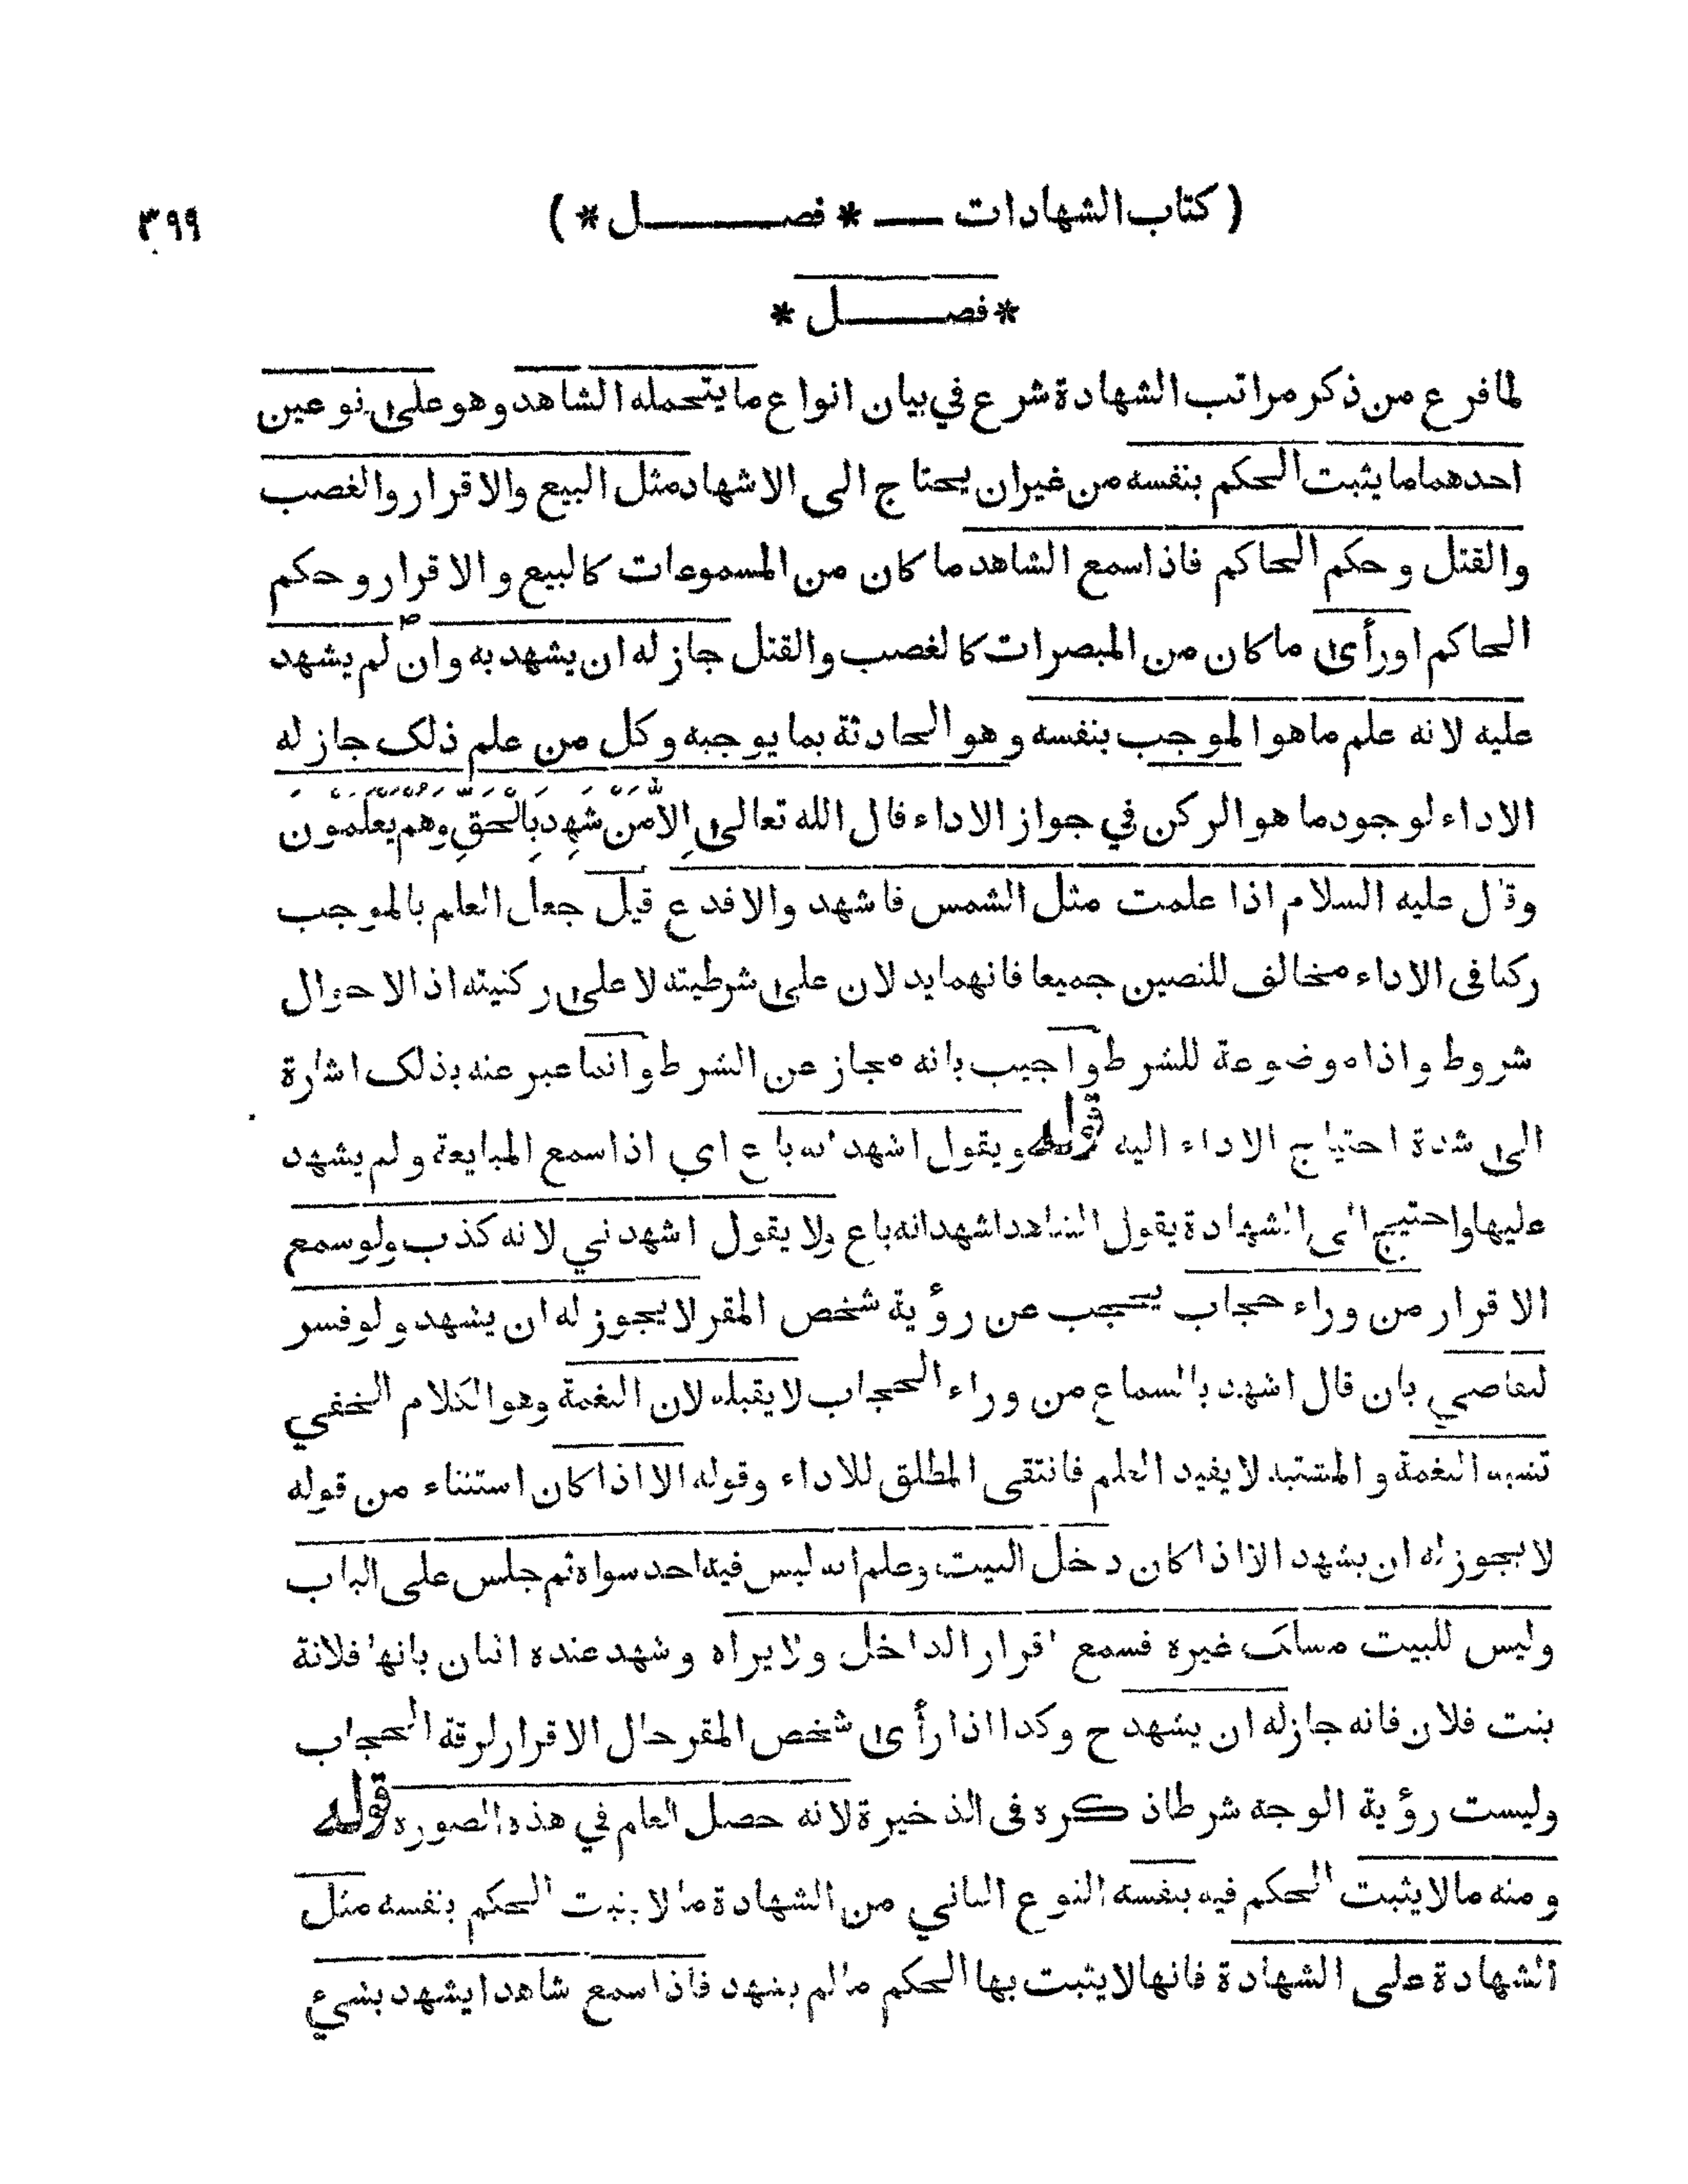 ( كتاب الشهادات — * فصـــــل * ) ٣٩٩
* فصـــــل *
لما فرغ من ذكر مراتب الشهادة شرع في بيان انواع ما يتحمله الشاهد وهو على نوعين
احدهما ما يثبت الحكم بنفسه من غير ان يحتاج الى الاشهاد مثل البيع والاقرار والغصب
والقتل وحكم الحاكم فاذا سمع الشاهد ما كان من المسموعات كالبيع والاقرار وحكم
الحاكم او رأى ما كان من المبصرات كالغصب والقتل جاز له ان يشهد به وان لم يشهد
عليه لانه علم ما هو الموجب بنفسه وهو الحادثة بما يوجبه وكل من علم ذلك جاز له
الاداء لوجود ما هو الركن في جواز الاداء قال الله تعالى اِلاَّ مَنْ شَهِدَ بِالْحَقِّ وَهُمْ يَعْلَمُونَ
وقال عليه السلام اذا علمت مثل الشمس فاشهد والا فدع قيل جعل العلم بالموجب
ركنا فى الاداء مخالف للنصين جميعا فانهما يدلان على شرطيته لا على ركنيته اذ الاحوال
شروط واذا موضوعة للشرط واجيب بانه مجاز عن الشرط وانما عبر عنه بذلك اشارة
الى شدة احتياج الاداء اليه قوله ويقول اشهد انه باع اي اذا سمع المبايعة ولم يشهد
عليها واحتيج الى الشهادة يقول الشاهد اشهد انه باع ولا يقول اشهدني لانه كذب ولو سمع
الاقرار من وراء حجاب يحجب عن رؤية شخص المقر لا يجوز له ان يشهد ولو فسر
للقاضي بان قال اشهد بالسماع من وراء الحجاب لا يقبله لان النغمة وهو الكلام الخفي
تشبه النغمة والمشتبه لا يفيد العلم فانتفى المطلق للاداء وقوله الا اذا كان استثناء من قوله
لا يجوز له ان يشهد الا اذا كان دخل البيت وعلم انه ليس فيه احد سواه ثم جلس على الباب
وليس للبيت مسلك غيره فسمع اقرار الداخل ولا يراه وشهد عنده اثنان بانها فلانة
بنت فلان فانه جاز له ان يشهد ح وكذا اذا رأى شخص المقر حال الاقرار لرقة الحجاب
وليست رؤية الوجه شرطا ذكره فى الذخيرة لانه حصل العلم في هذه الصورة قوله
ومنه ما لا يثبت الحكم فيه بنفسه النوع الثاني من الشهادة ما لا يثبت الحكم بنفسه مثل
الشهادة على الشهادة فانها لا يثبت بها الحكم ما لم يشهد فاذا سمع شاهدا يشهد بشيء